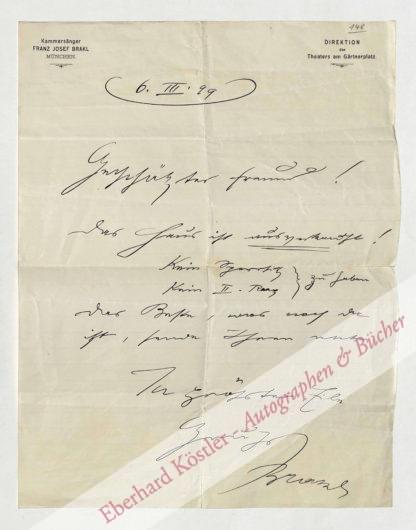 148
Kammersänger
FRANZ JOSEF BRAKL
MÜNCHEN.
DIREKTION
des
Theaters am Gärtnerplatz
6. III. 99
Geschätzter Freund!
Das Haus ist ausverkauft!
Kein Sperrsitz
Kein II. Rang } zu haben
das Beste, was noch da
ist, sende Ihnen
In größter Eile
Brakl
Eberhard Köstler - Autographen & Bücher